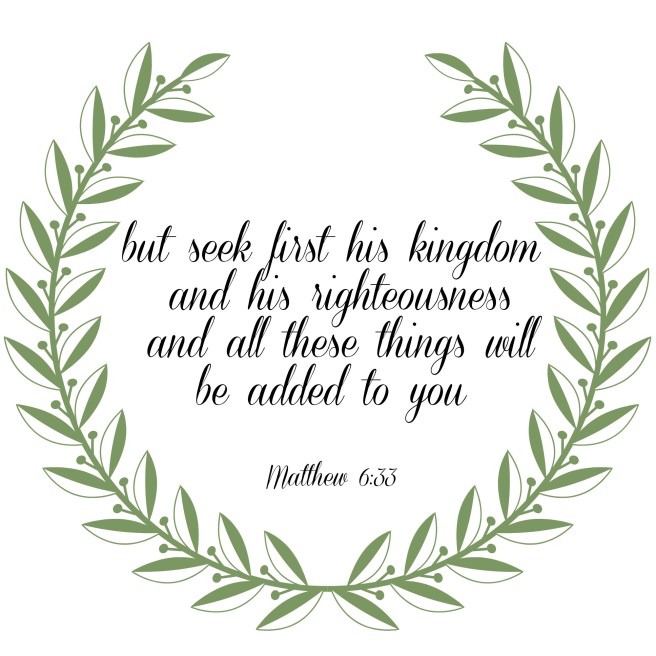 but seek first his kingdom
and his righteousness
and all these things will
be added to you
Matthew 6:33